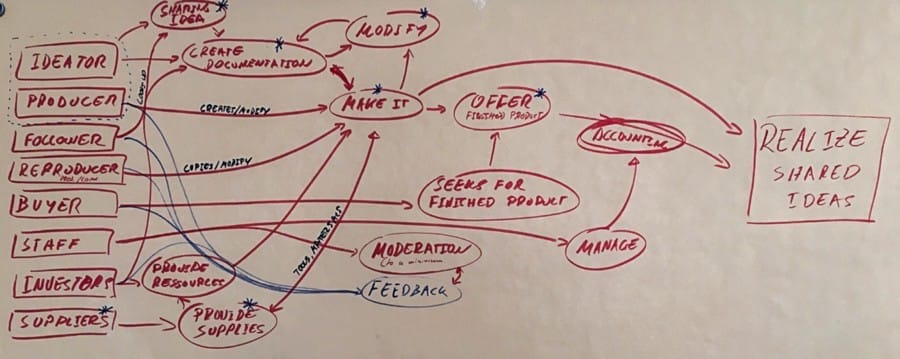 SHARING
IDEA
MODIFY
CREATE
DOCUMENTATION
IDEATOR
PRODUCER
MAKE IT
OFFER
FINISHED PRODUCT
CREATES/MODIFY
FOLLOWER
REPRODUCER
COPIES/MODIFY
ACCOUNTING
REALIZE
SHARED
IDEAS
BUYER
SEEKS FOR
FINISHED PRODUCT
STAFF
MANAGE
MODERATION
TOOLS, MATERIALS
INVESTORS
PROVIDE
RESSOURCES
FEEDBACK
SUPPLIERS
PROVIDE
SUPPLIES